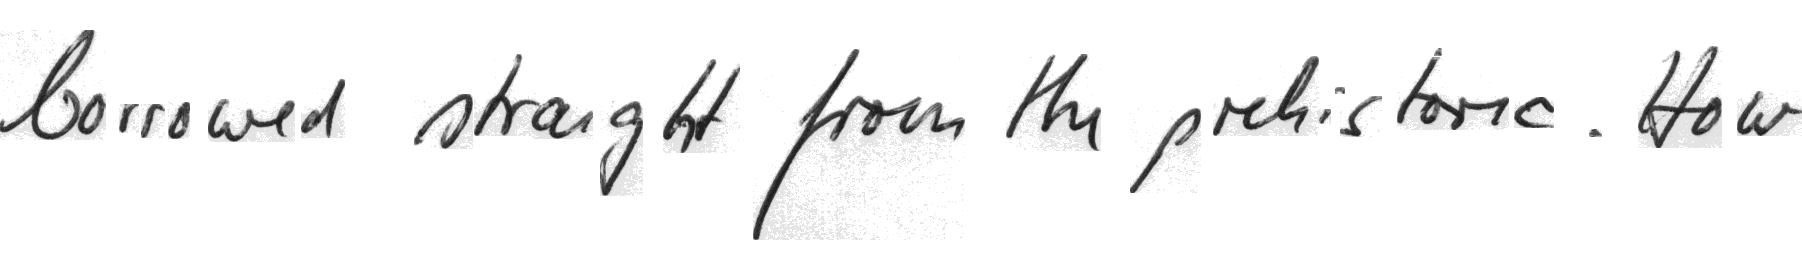 borrowed straight from the prehistoric. How